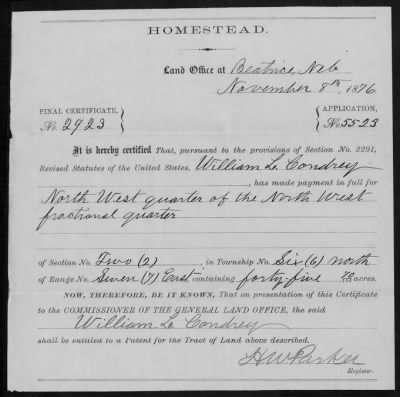 HOMESTEAD.
Land Office at Beatrice, Neb
November 8th, 1876
FINAL CERTIFICATE, No. 2923
APPLICATION, No. 5523
It is hereby certified That, pursuant to the provisions of Section No. 2291,
Revised Statutes of the United States, William L. Condrey
, has made payment in full for
North West quarter of the North West
fractional quarter
of Section No. Two (2), in Township No. Six (6) north
of Range No. Seven (7) East containing forty-five acres.
NOW, THEREFORE, BE IT KNOWN, That on presentation of this Certificate
to the COMMISSIONER OF THE GENERAL LAND OFFICE, the said
William L. Condrey
shall be entitled to a Patent for the Tract of Land above described.
H W Parker
Register.